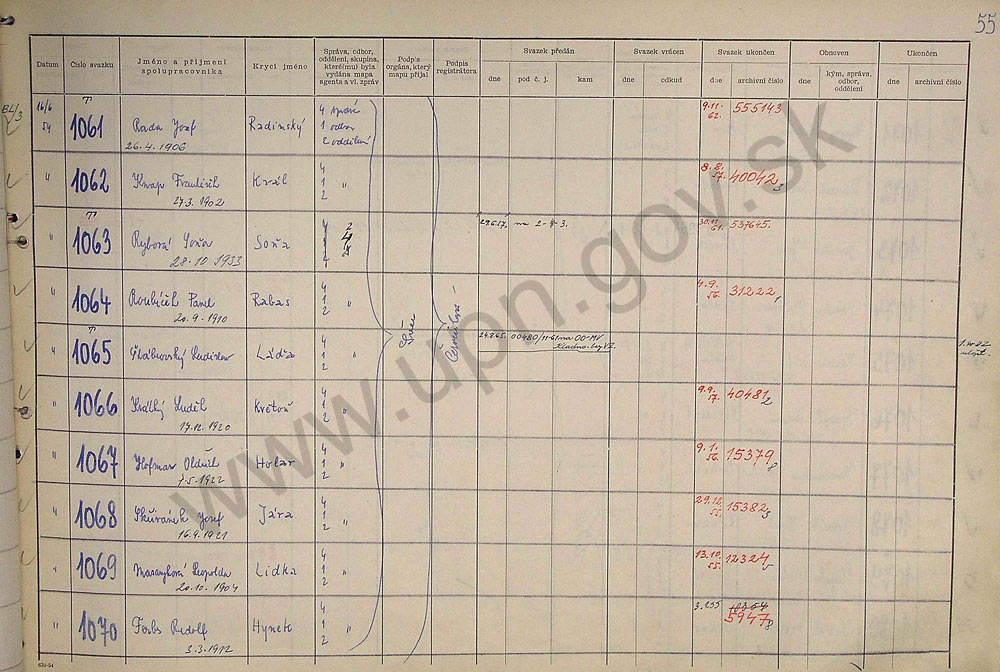 55
Datum
Číslo svazku
Jméno a příjmení spolupracovníka
Krycí jméno
Správa, odbor, oddělení, skupina, které(mu) byla vydána mapa agenta a vl. zpráv
Podpis orgána, který mapu přijal
Podpis registrátora
Svazek předán
dne
pod č. j.
kam
Svazek vrácen
dne
odkud
Svazek ukončen
dne
archivní číslo
Obnoven
dne
kým, správa, odbor, oddělení
Ukončen
dne
archivní číslo
16/6 54 1061 Rada Josef Radinský 4 správa 9.11. 62. 555143
1 odbor
26.4.1906 2 oddělení
" 1062 Knap František Král 4 1 " 2 8.8. 57. 40042
27.3.1902
" 1063 Rybová Soňa Soňa 30.11. 61. 537645.
28.10.1933
" 1064 Pavel Rabas 4 1 " 2 4.9. 56. 31222
20.9.1910
" 1065 Ladislav Láďa 4 1 " 2 00480/
" 1066 Krátký Luděk Květoň 4 1 " 2 9.9. 57. 40481 2
17.12.1920
" 1067 Hofman Oldřich Holar 4 1 " 2 9.1. 56. 15379 8
7.5.1922
" 1068 Josef Jára 4 1 " 2 29.12. 55. 15382
16.9.1921
" 1069 Leopolda Lidka 4 1 " 2 13.10. 55. 12324
20.10.1904
" 1070 Rudolf Hynek 4 1 " 2 5947 8
3.3.1912
630-54
www.upn.gov.sk